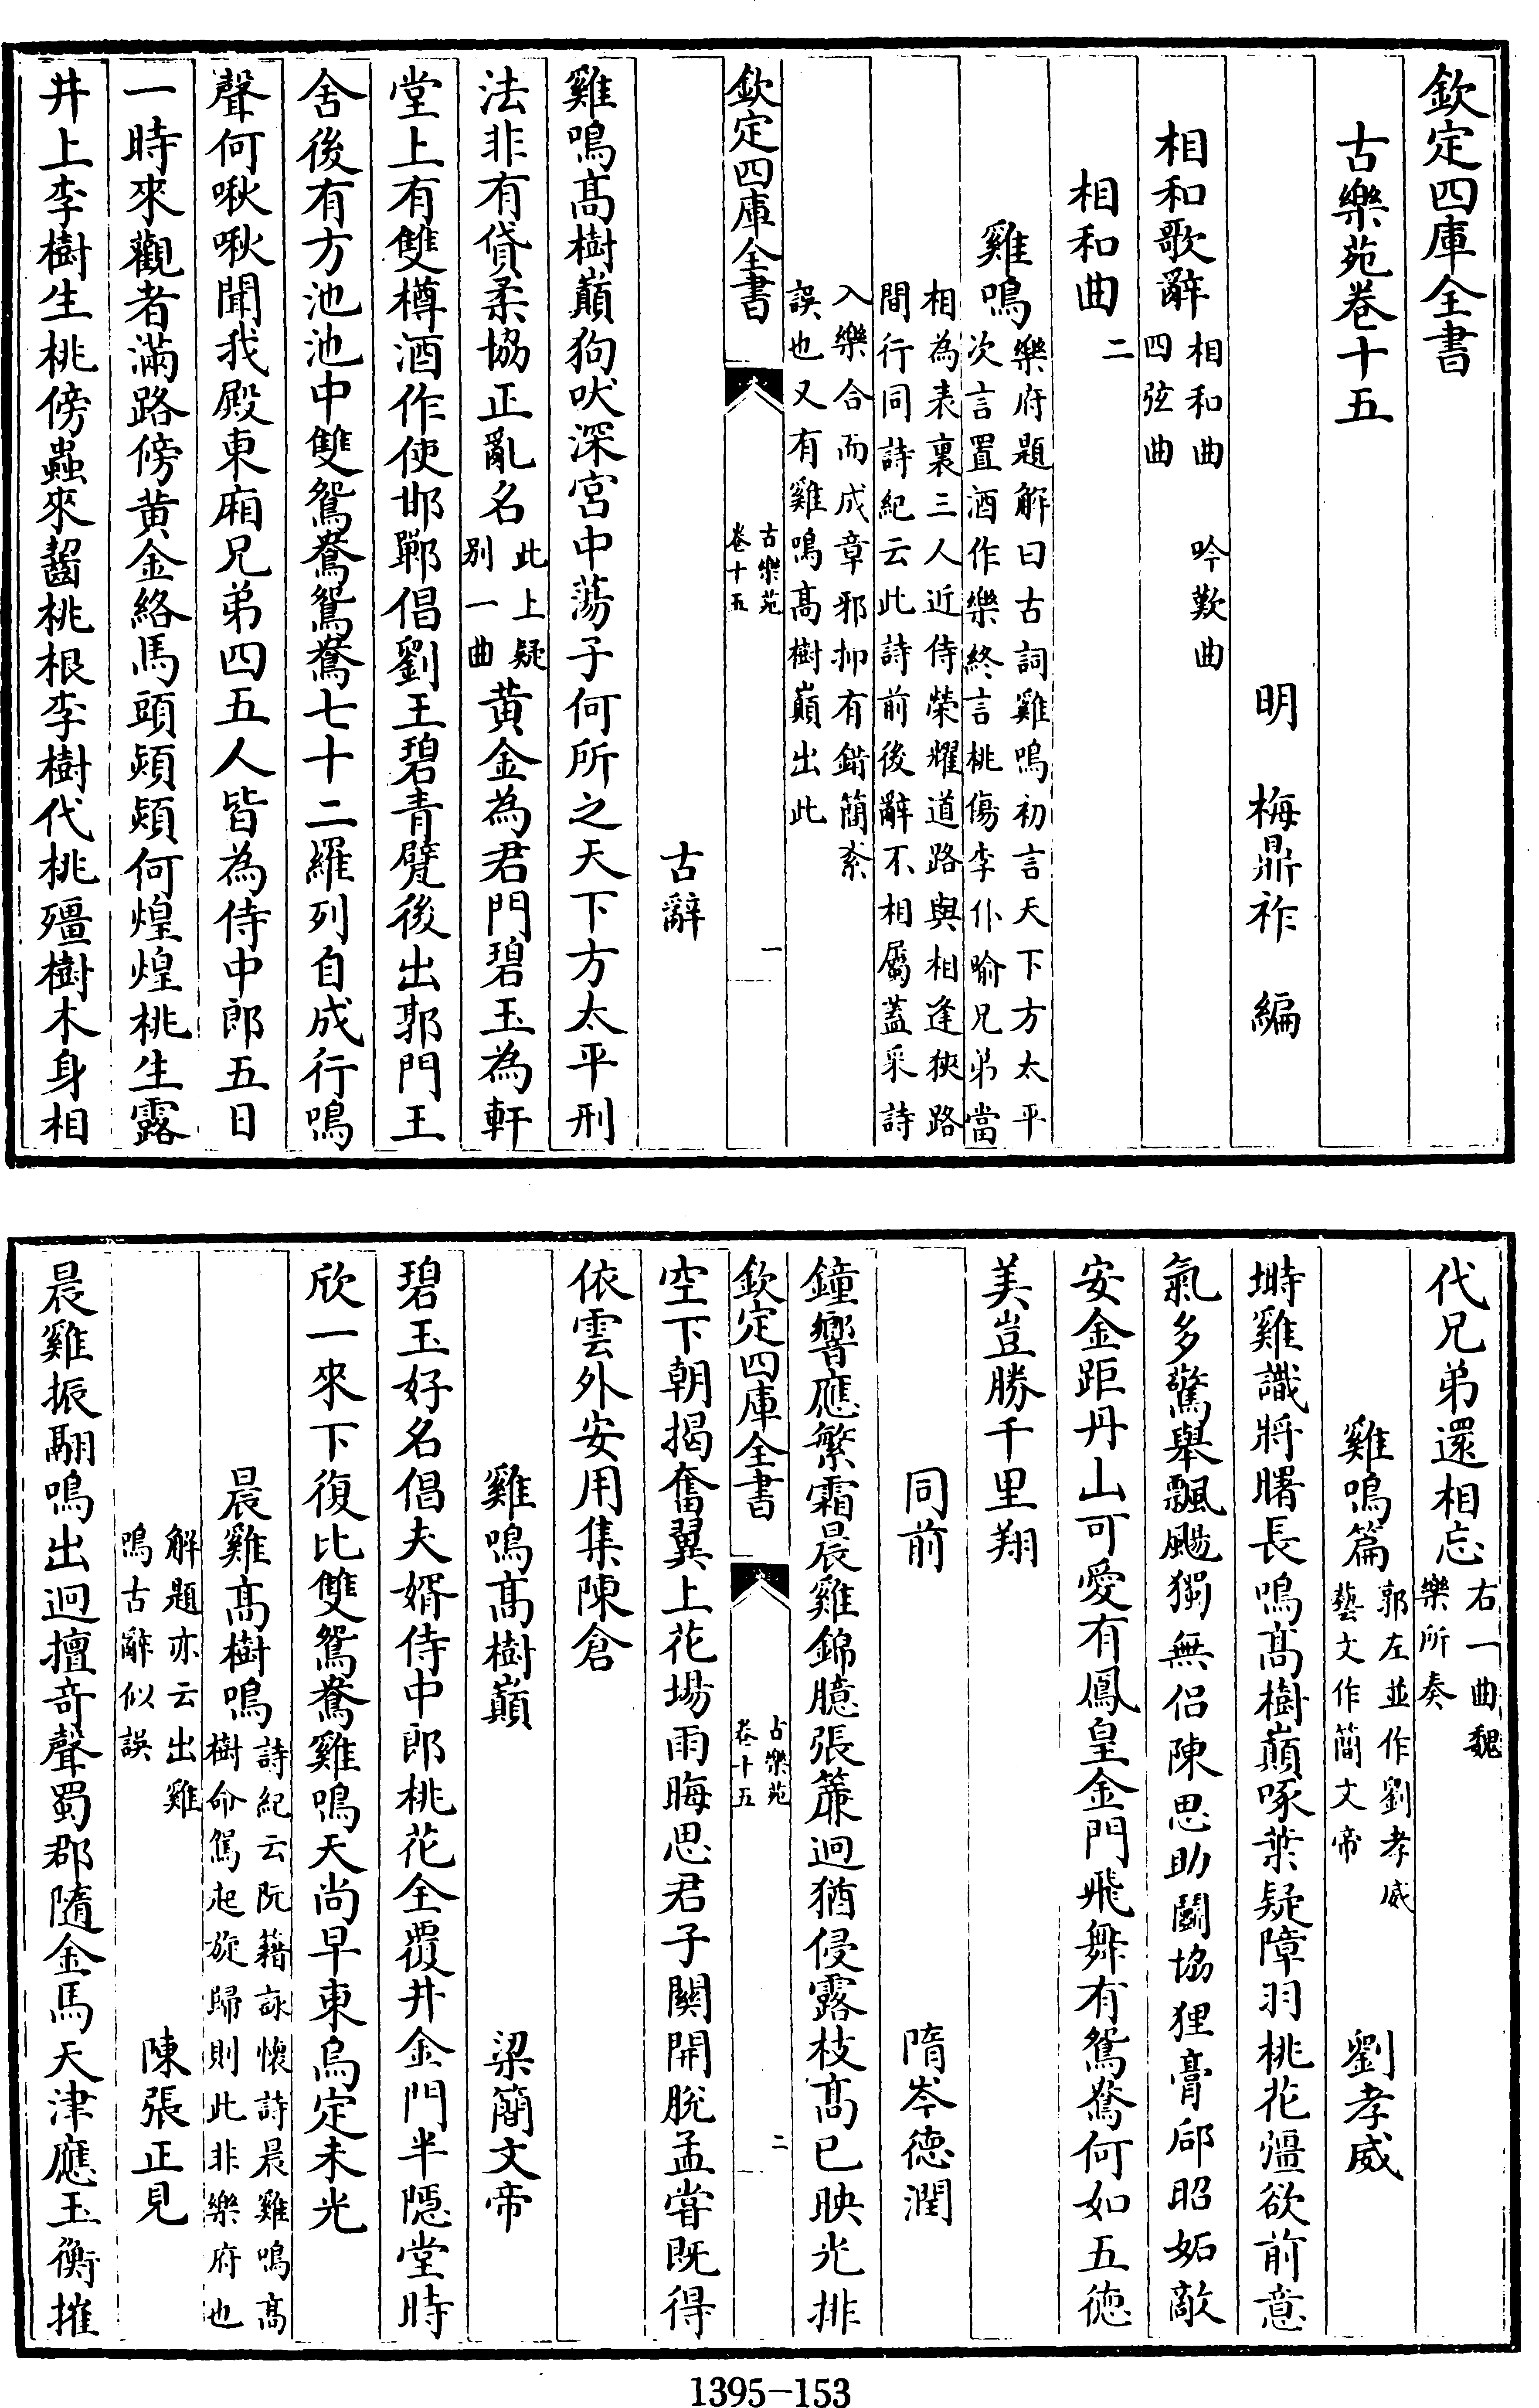 欽定四庫全書
古樂苑卷十五
明　梅鼎祚　編
相和歌辭相和曲　吟歎曲
四弦曲
相和曲二
雞鳴樂府題解曰古詞雞鳴初言天下方太平
次言置酒作樂終言桃傷李仆喻兄弟當
相為表裏三人近侍榮耀道路與相逢狹路
間行同詩紀云此詩前後辭不相屬蓋采詩
入樂合而成章邪抑有錯簡紊
誤也又有雞鳴高樹巔出此
欽定四庫全書
古樂苑
卷十五
一
古辭
雞鳴高樹巔狗吠深宮中蕩子何所之天下方太平刑
法非有貸柔協正亂名此上疑
别一曲黄金為君門碧玉為軒
堂上有雙樽酒作使邯鄲倡劉王碧青甓後出郭門王
舍後有方池池中雙鴛鴦鴛鴦七十二羅列自成行鳴
聲何啾啾聞我殿東廂兄弟四五人皆為侍中郎五日
一時來觀者滿路傍黄金絡馬頭熲熲何煌煌桃生露
井上李樹生桃傍蟲來齧桃根李樹代桃殭樹木身相
代兄弟還相忘右一曲魏
樂所奏
雞鳴篇郭左並作劉孝威
藝文作簡文帝
劉孝威
塒雞識將曙長鳴高樹巔啄葉疑障羽桃花彊欲前意
氣多驚舉飄颺獨無侣陳思助鬭協狸膏郈昭妬敵
安金距丹山可愛有鳳皇金門飛舞有鴛鴦何如五德
美豈勝千里翔
同前
隋岑德潤
鐘響應繁霜晨雞錦臆張簾迥猶侵露枝高已映光排
欽定四庫全書
古樂苑
卷十五
二
空下朝揭奮翼上花場雨晦思君子關開脱孟甞既得
依雲外安用集陳倉
雞鳴高樹巔
梁簡文帝
碧玉好名倡夫婿侍中郎桃花全覆井金門半隱堂時
欣一來下復比雙鴛鴦雞鳴天尚早東烏定未光
晨雞高樹鳴詩紀云阮籍詠懷詩晨雞鳴高
樹命駕起旋歸則此非樂府也
解題亦云出雞
鳴古辭似誤
陳張正見
晨雞振翮鳴出迥擅奇聲蜀郡隨金馬天津應玉衡摧
1395-153